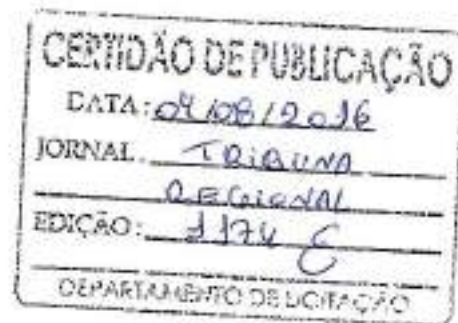 CERTIDÃO DE PUBLICAÇÃO
DATA: 04/08/2016
JORNAL. TRIBUNA
REGIONAL
EDIÇÃO: 1174
DEPARTAMENTO DE LICITAÇÃO